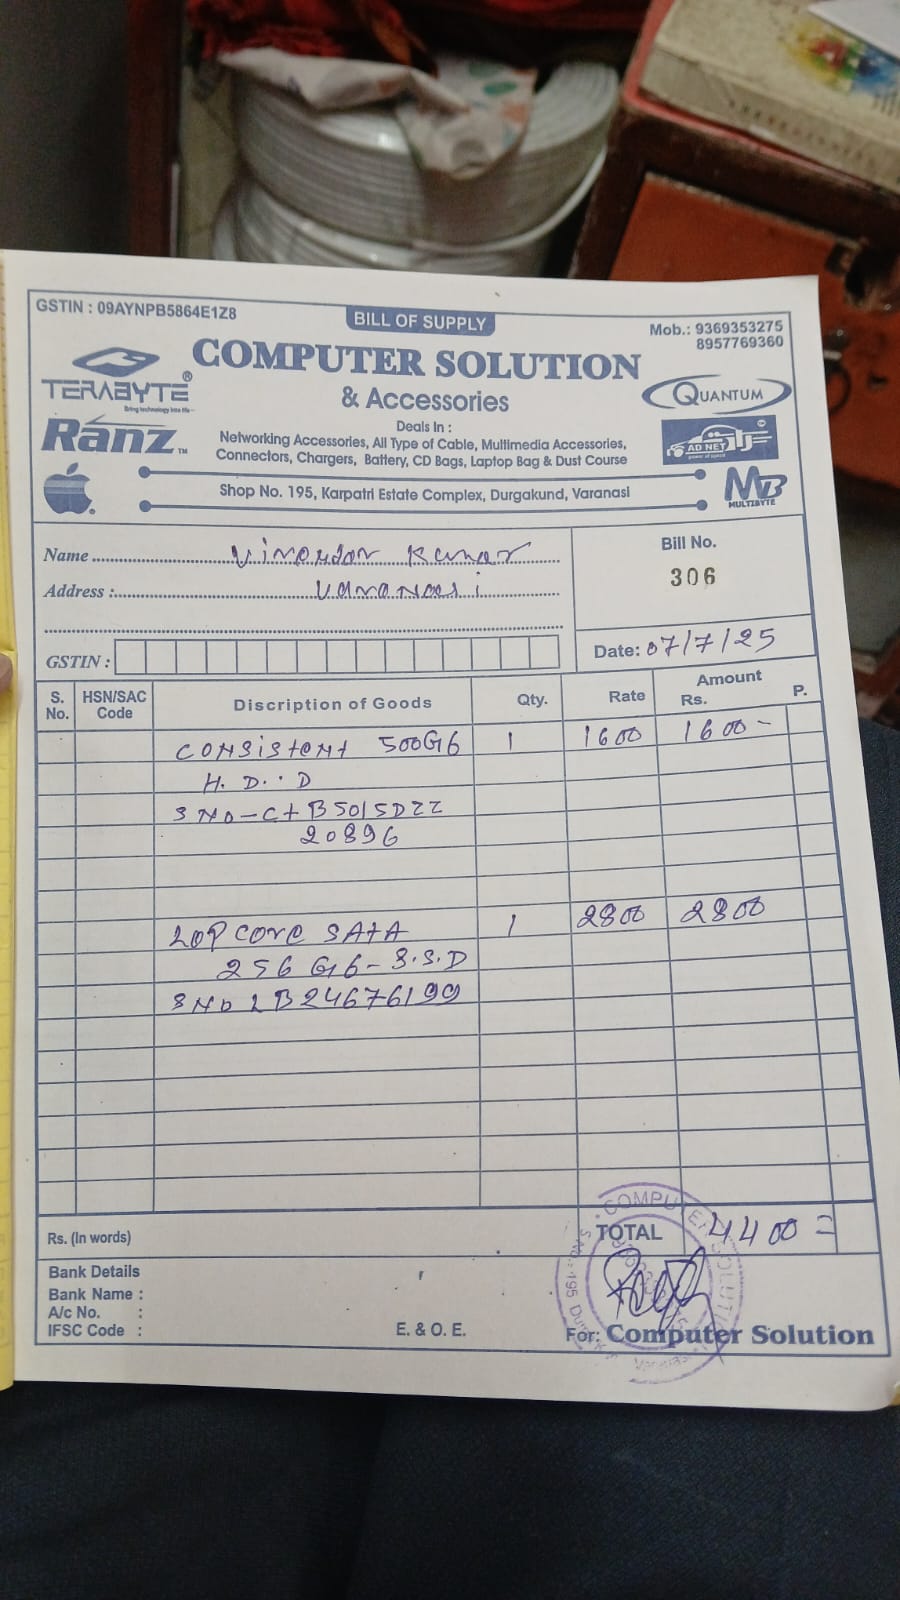 GSTIN : 09AYNPB5864E1Z8
BILL OF SUPPLY
Mob.: 9369353275
8957769360
COMPUTER SOLUTION
& Accessories
TERABYTE®
Bring technology into life
Ranz™
QUANTUM
AD NET
power of speed
MB
MULTIBYTE
Deals In :
Networking Accessories, All Type of Cable, Multimedia Accessories,
Connectors, Chargers, Battery, CD Bags, Laptop Bag & Dust Course
Shop No. 195, Karpatri Estate Complex, Durgakund, Varanasi
Name Kumar
Address :
Bill No.
306
GSTIN :
Date: 07/7/25
S. No. HSN/SAC Code Discription of Goods Qty. Rate Amount Rs. P.
Consistent 500GB 1 1600 1600-
H.D.D
SNO-Ct B5015DZZ
20896
LOPCORE SATA 1 2800 2800
256 GB-S.S.D
SNO LB24676199
Rs. (In words)
TOTAL 4400=
Bank Details
Bank Name :
A/c No. :
IFSC Code :
E. & O. E.
For: Computer Solution
COMPUTER SOLUTION